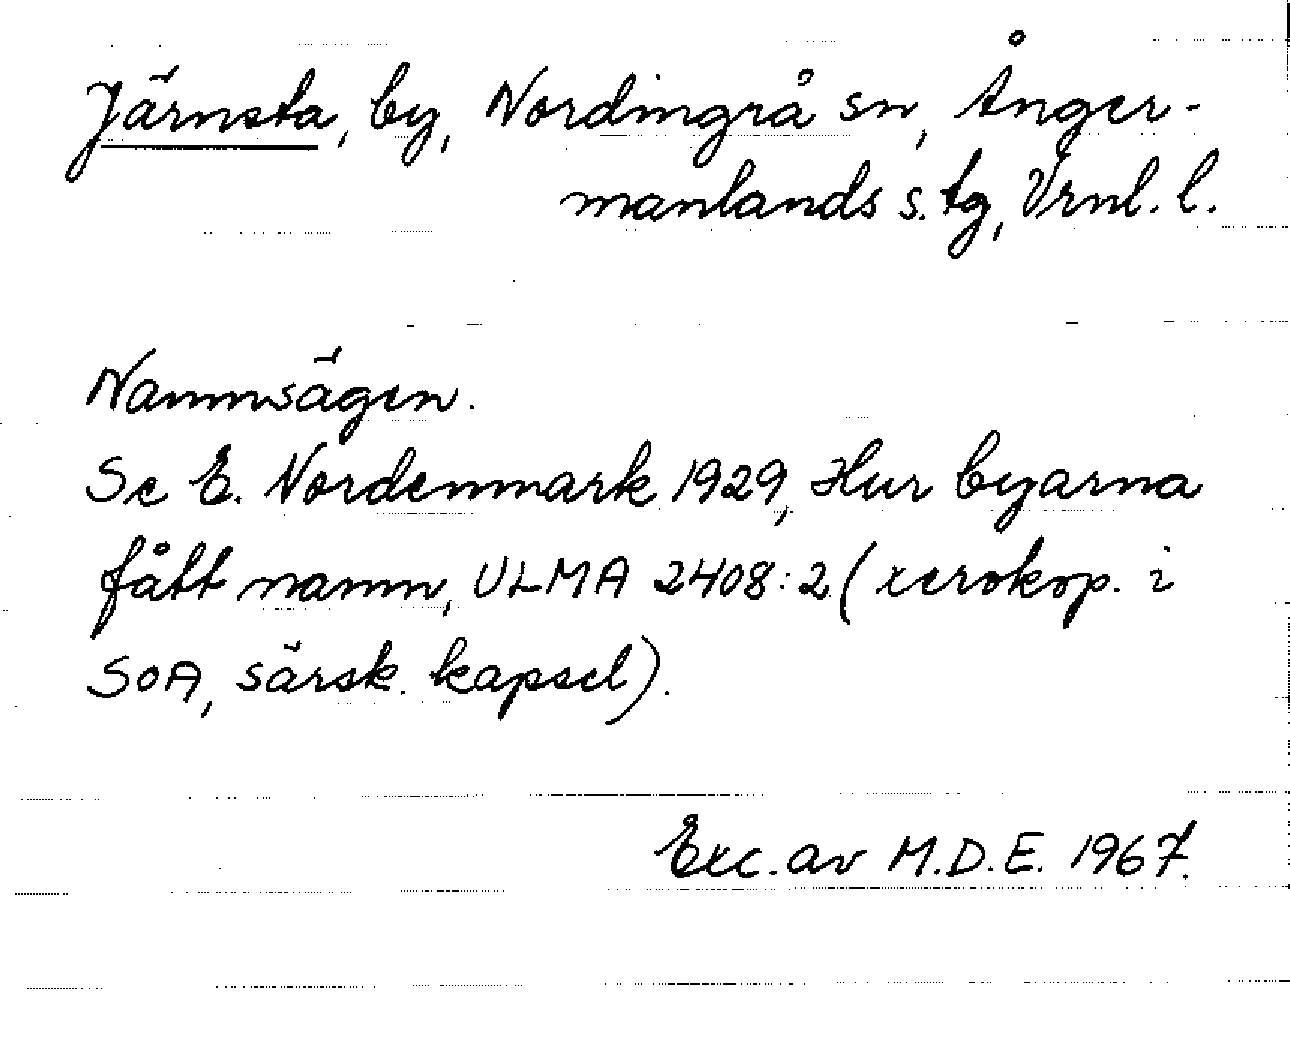 Järnsta, by, Nordingrå sn, Ånger-
manlands s. tg, Vrnl. l.
Namnsägen.
Se E. Nordenmark 1929, Hur byarna
fått namn, ULMA 2408:2 (xerokop. i
SOA, särsk. kapsel).
Exc. av M.D.E. 1967.